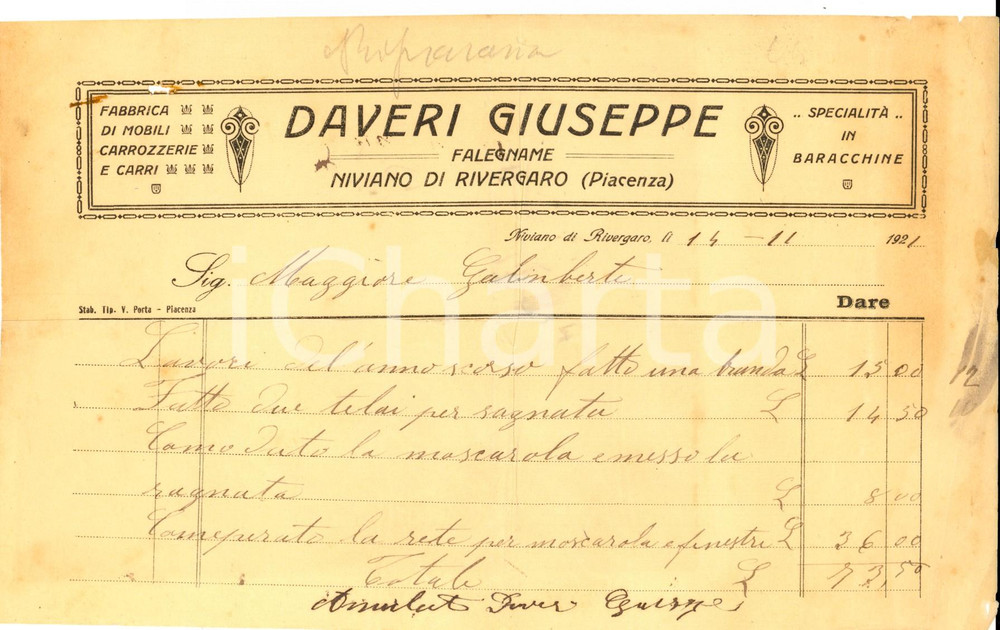 FABBRICA
DI MOBILI
CARROZZERIE
E CARRI
DAVERI GIUSEPPE
FALEGNAME
NIVIANO DI RIVERGARO (Piacenza)
.. SPECIALITÀ ..
IN
BARACCHINE
Niviano di Rivergaro, li 14 - 11 1921
Sig. Maggiore Galinberti
Dare
Stab. Tip. V. Porta - Piacenza
iCharta
Lavori del'anno scorso fatto una branda L 15 00
Fatto due telai per ragnata L 14 50
Comodato la moscarola e messo la
ragnata L 8 00
Comperato la rete per moscarola e finestri L 36 00
Totale L 73,50